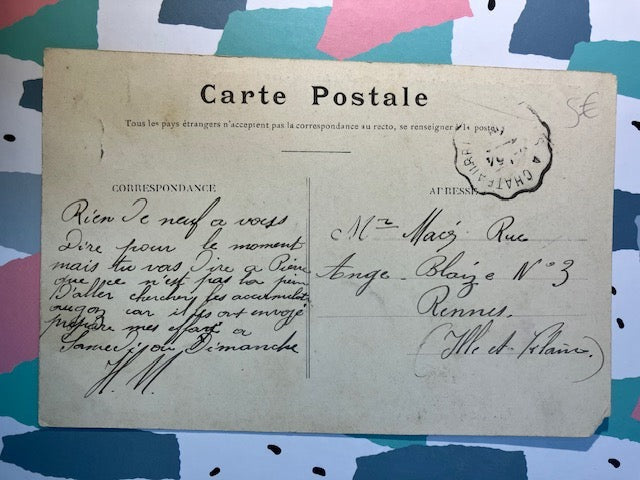 Carte Postale
5€
Tous les pays étrangers n'acceptent pas la correspondance au recto, se renseigner à la poste
A CHATEAUBRI
CORRESPONDANCE
ADRESSE
Rien de neuf a vous
dire pour le moment
mais tu vas dire a Pierre
que ce n'est pas la peine
D'aller chercher les accumulat
car il les ont envoyé
prépare mes a
Samedi ou Dimanche
H. M
Mr Macé Rue
Ange Blaize N° 3
Rennes.
(Ille et Vilaine.)